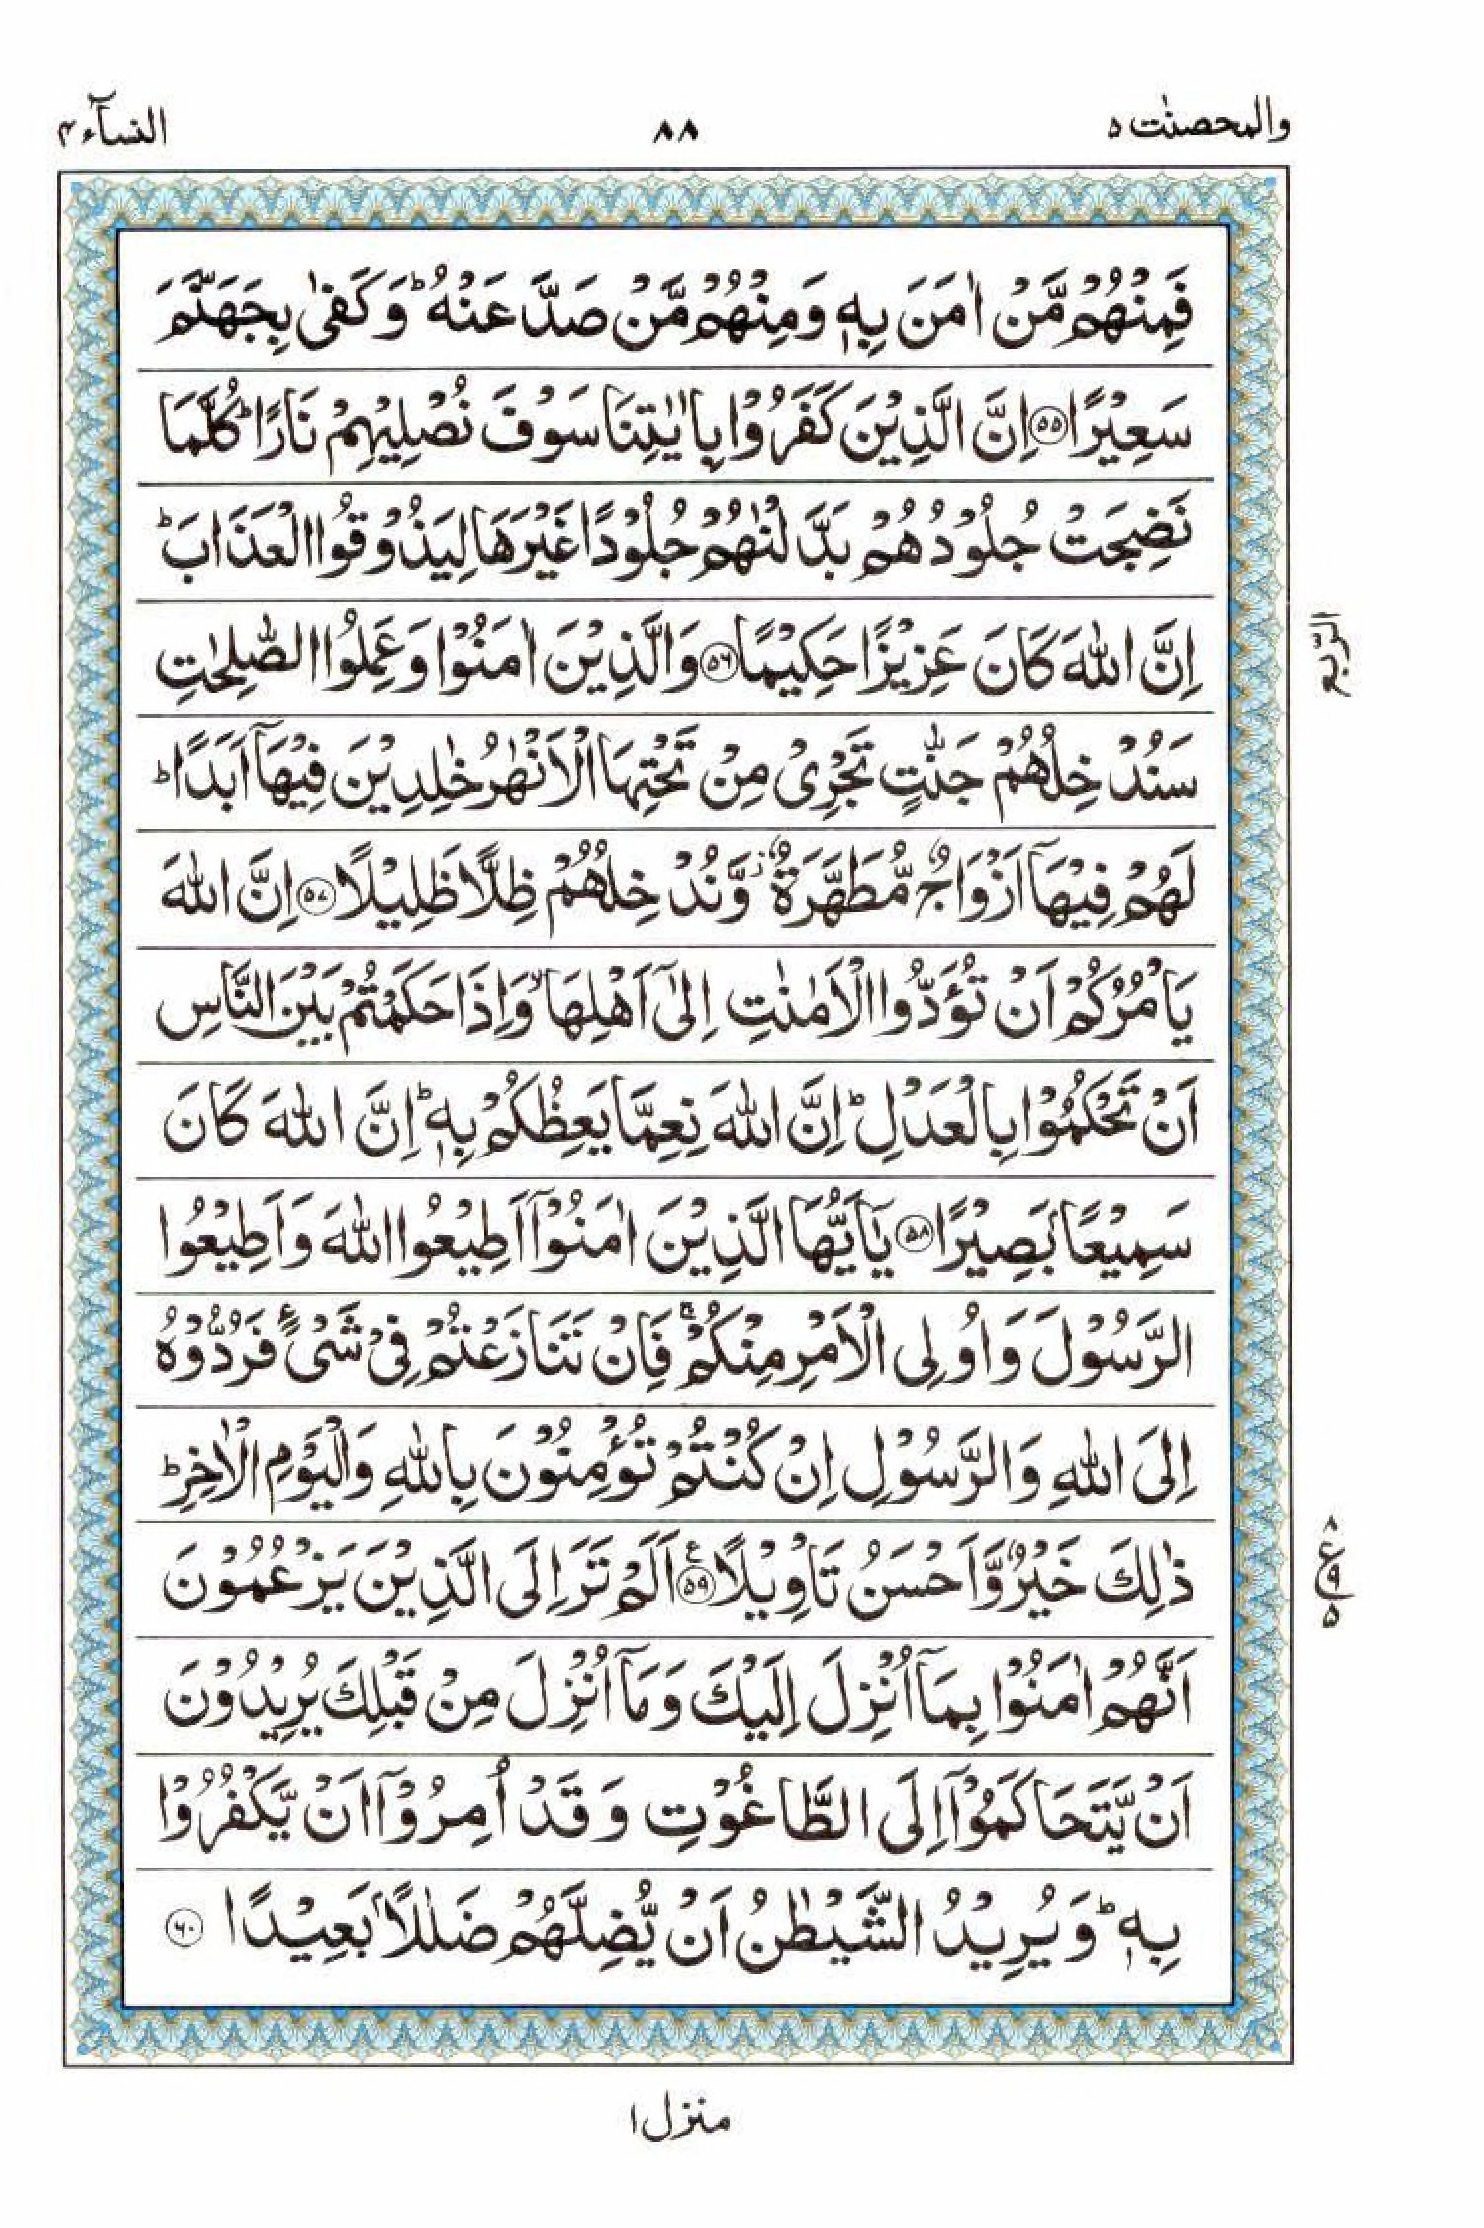 والمحصنٰت ۵
۸۸
النسآء ۴
فَمِنْهُمْ مَّنْ اٰمَنَ بِهٖ وَمِنْهُمْ مَّنْ صَدَّ عَنْهُ ؕ وَكَفٰى بِجَهَنَّمَ
سَعِيْرًا ﴿۵۵﴾ اِنَّ الَّذِيْنَ كَفَرُوْا بِاٰيٰتِنَا سَوْفَ نُصْلِيْهِمْ نَارًا ؕ كُلَّمَا
نَضِجَتْ جُلُوْدُهُمْ بَدَّلْنٰهُمْ جُلُوْدًا غَيْرَهَا لِيَذُوْقُوا الْعَذَابَ ؕ
اِنَّ اللّٰهَ كَانَ عَزِيْزًا حَكِيْمًا ﴿۵۶﴾ وَالَّذِيْنَ اٰمَنُوْا وَعَمِلُوا الصّٰلِحٰتِ
سَنُدْخِلُهُمْ جَنّٰتٍ تَجْرِىْ مِنْ تَحْتِهَا الْاَنْهٰرُ خٰلِدِيْنَ فِيْهَاۤ اَبَدًا ؕ
لَهُمْ فِيْهَاۤ اَزْوَاجٌ مُّطَهَّرَةٌ ۫ وَّنُدْخِلُهُمْ ظِلًّا ظَلِيْلًا ﴿۵۷﴾ اِنَّ اللّٰهَ
يَاْمُرُكُمْ اَنْ تُؤَدُّوا الْاَمٰنٰتِ اِلٰٓى اَهْلِهَا ۙ وَاِذَا حَكَمْتُمْ بَيْنَ النَّاسِ
اَنْ تَحْكُمُوْا بِالْعَدْلِ ؕ اِنَّ اللّٰهَ نِعِمَّا يَعِظُكُمْ بِهٖ ؕ اِنَّ اللّٰهَ كَانَ
سَمِيْعًۢا بَصِيْرًا ﴿۵۸﴾ يٰۤاَيُّهَا الَّذِيْنَ اٰمَنُوْۤا اَطِيْعُوا اللّٰهَ وَاَطِيْعُوا
الرَّسُوْلَ وَاُولِى الْاَمْرِ مِنْكُمْ ۚ فَاِنْ تَنَازَعْتُمْ فِىْ شَىْءٍ فَرُدُّوْهُ
اِلَى اللّٰهِ وَالرَّسُوْلِ اِنْ كُنْتُمْ تُؤْمِنُوْنَ بِاللّٰهِ وَالْيَوْمِ الْاٰخِرِ ؕ
ذٰلِكَ خَيْرٌ وَّاَحْسَنُ تَاْوِيْلًا ﴿۵۹﴾ ع اَلَمْ تَرَ اِلَى الَّذِيْنَ يَزْعُمُوْنَ
اَنَّهُمْ اٰمَنُوْا بِمَاۤ اُنْزِلَ اِلَيْكَ وَمَاۤ اُنْزِلَ مِنْ قَبْلِكَ يُرِيْدُوْنَ
اَنْ يَّتَحَاكَمُوْۤا اِلَى الطَّاغُوْتِ وَقَدْ اُمِرُوْۤا اَنْ يَّكْفُرُوْا
بِهٖ ؕ وَيُرِيْدُ الشَّيْطٰنُ اَنْ يُّضِلَّهُمْ ضَلٰلًۢا بَعِيْدًا ﴿۶۰﴾
الرّبع
۸
ع ۹
۵
منزل ۱